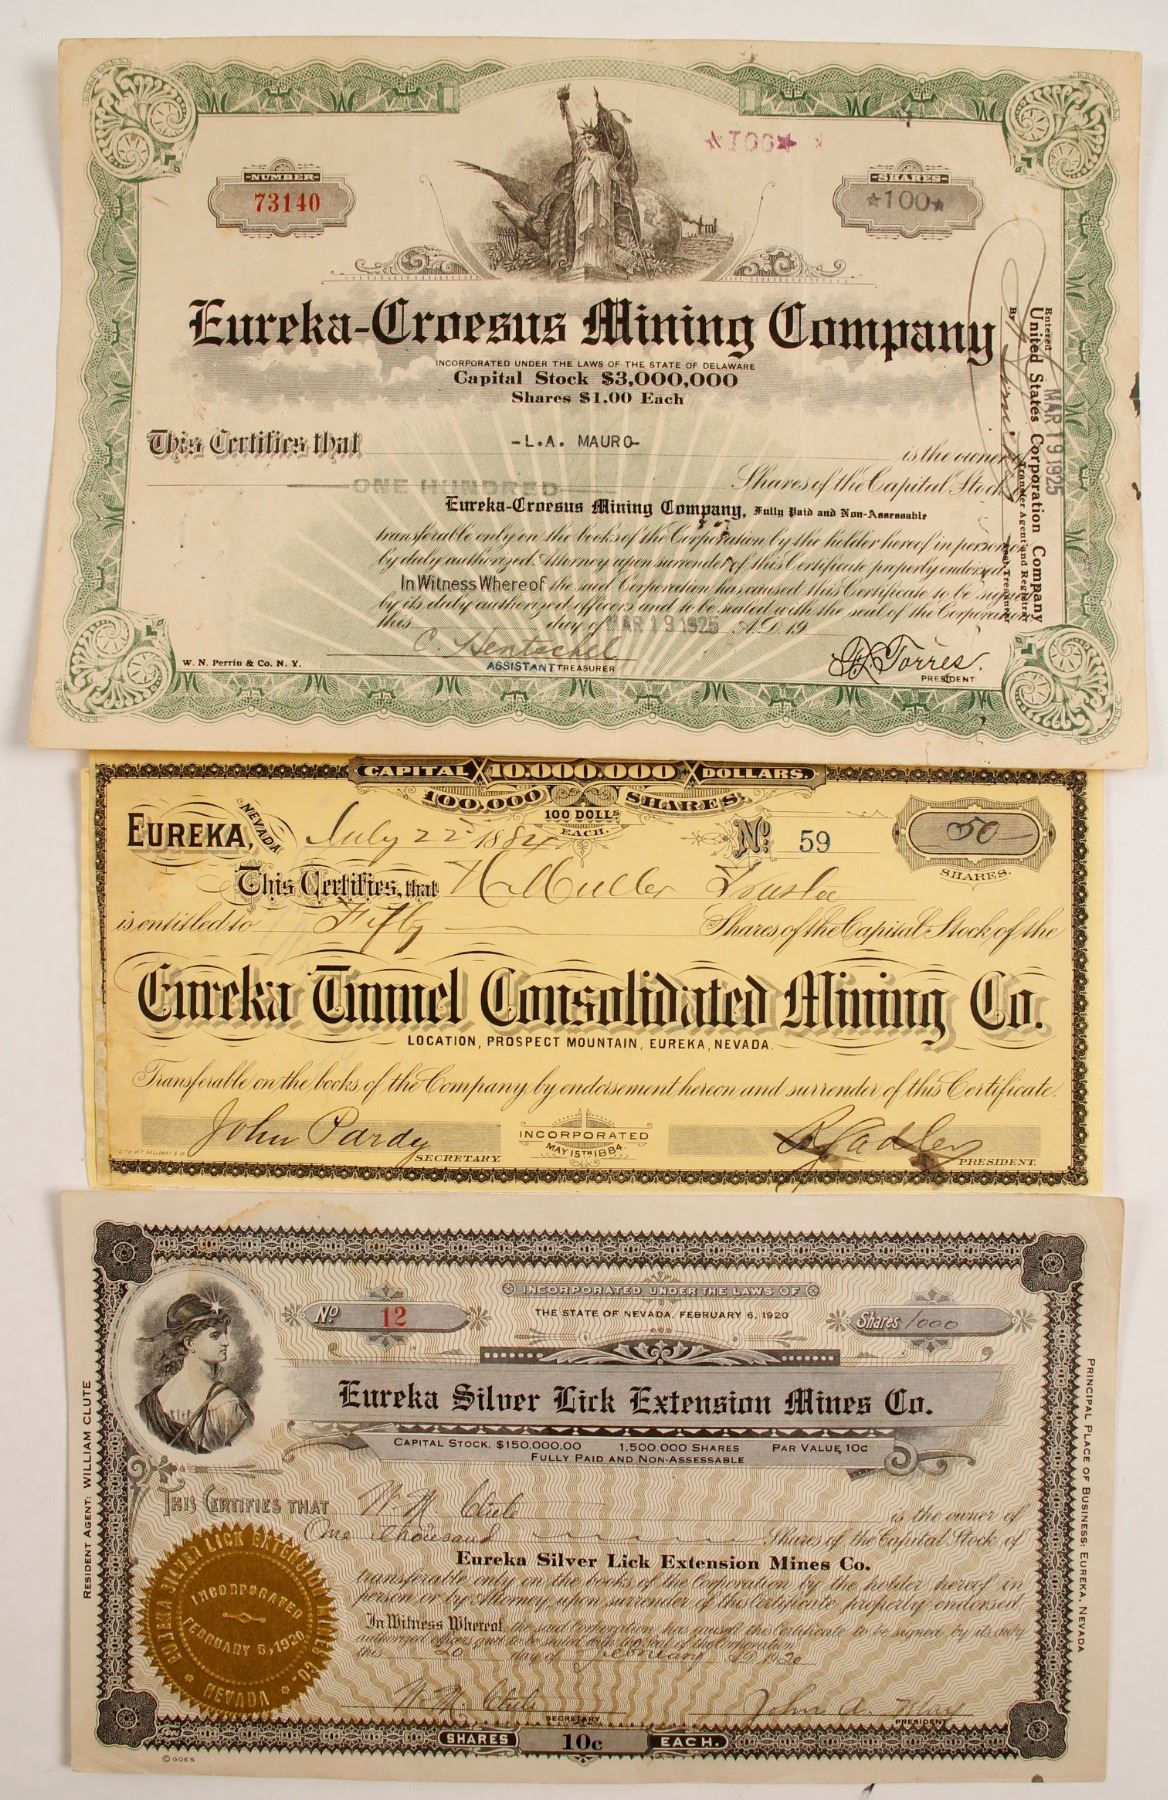 ★100★
NUMBER
73140
SHARES
★100★
Eureka-Croesus Mining Company
INCORPORATED UNDER THE LAWS OF THE STATE OF DELAWARE
Capital Stock $3,000,000
Shares $1.00 Each
This Certifies that -L.A. MAURO- is the owner of
ONE HUNDRED Shares of the Capital Stock
Eureka-Croesus Mining Company, Fully Paid and Non-Assessable
transferable only on the books of the Corporation by the holder hereof in person or
by duly authorized Attorney upon surrender of this Certificate properly endorsed.
In Witness Whereof the said Corporation has caused this Certificate to be signed
by its duly authorized officers and to be sealed with the seal of the Corporation
this day of MAR 19 1925 A.D. 19
C. Hentschel
ASSISTANT TREASURER
Torres.
PRESIDENT
W. N. Perrin & Co. N. Y.
Entered MAR 19 1925
United States Corporation Company
Transfer Agent and Registrar
By
CAPITAL 10.000.000 DOLLARS.
100,000 SHARES
100 DOLLS EACH.
EUREKA, NEVADA July 22 1884
No. 59
50
SHARES.
This Certifies, that H Muller Trustee
is entitled to Fifty Shares of the Capital Stock, of the
Eureka Tunnel Consolidated Mining Co.
LOCATION, PROSPECT MOUNTAIN, EUREKA, NEVADA.
Transferable on the books of the Company by endorsement hereon and surrender of this Certificate.
John Pardy
SECRETARY.
INCORPORATED
MAY 15TH 1884
Sadler
PRESIDENT.
INCORPORATED UNDER THE LAWS OF
THE STATE OF NEVADA, FEBRUARY 6, 1920
No 12
Shares 1000
Eureka Silver Lick Extension Mines Co.
CAPITAL STOCK, $150,000.00 1,500,000 SHARES PAR VALUE, 10c
FULLY PAID AND NON-ASSESSABLE
THIS CERTIFIES THAT W. N. Clute is the owner of
One thousand Shares of the Capital Stock of
Eureka Silver Lick Extension Mines Co.
transferable only on the books of the Corporation by the holder hereof in
person or by Attorney upon surrender of this Certificate properly endorsed.
In Witness Whereof, the said Corporation has caused this Certificate to be signed by its duly
authorized officers and to be sealed with the Seal of the Corporation
this 20 day of February A.D. 1920
W. N. Clute
SECRETARY
John A.
PRESIDENT
SHARES 10c EACH.
©GOES
RESIDENT AGENT: WILLIAM CLUTE
PRINCIPAL PLACE OF BUSINESS: EUREKA, NEVADA
EUREKA SILVER LICK EXTENSION MINES CO.
INCORPORATED
FEBRUARY 6, 1920
NEVADA